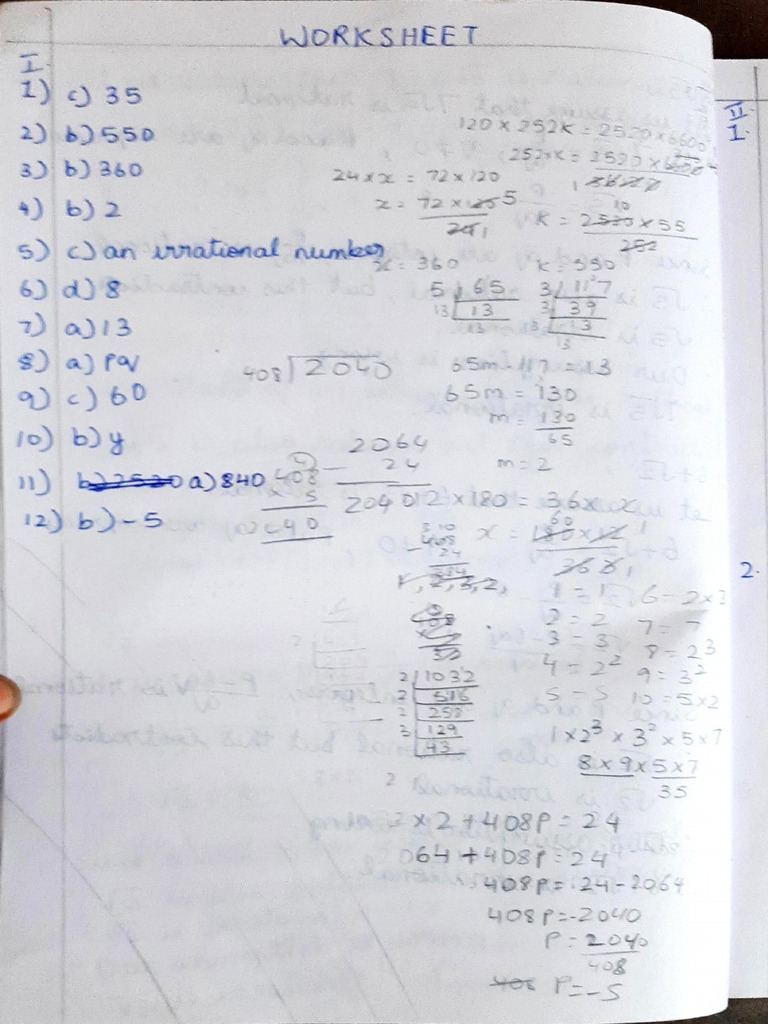 WORKSHEET
I
1) c) 35
2) b) 550
3) b) 360
4) b) 2
5) c) an irrational number
6) d) 8
7) a) 13
8) a) pq
9) c) 60
10) b) y
11) b) 2520 a) 840
12) b) -5
120 × 252K = 2520 × 6600
252K = 2520 × 6600
24 × x = 72 × 120
x = 72 × 120 5
K = 2520 × 55
252
x = 360 K = 550
5 65 3 117
13 13 3 39
13 13 13
13
408 2040
65m - 117 = 13
65m = 130
m = 130
65
m = 2
2064
- 24
2040
408
× 5
2040
12 × 180 = 36 × x
x = 180 × 12
36
408
- 24
384
1 = 1 6 = 2 × 3
2 = 2 7 = 7
3 = 3 8 = 2³
4 = 2² 9 = 3²
5 = 5 10 = 5 × 2
2 1032
2 516
2 258
3 129
43
1 × 2³ × 3² × 5 × 7
8 × 9 × 5 × 7
35
× 2 + 408P = 24
064 + 408P = 24
408P = 24 - 2064
408P = -2040
P = 2040
408
408 P = -5
II
1.
2.